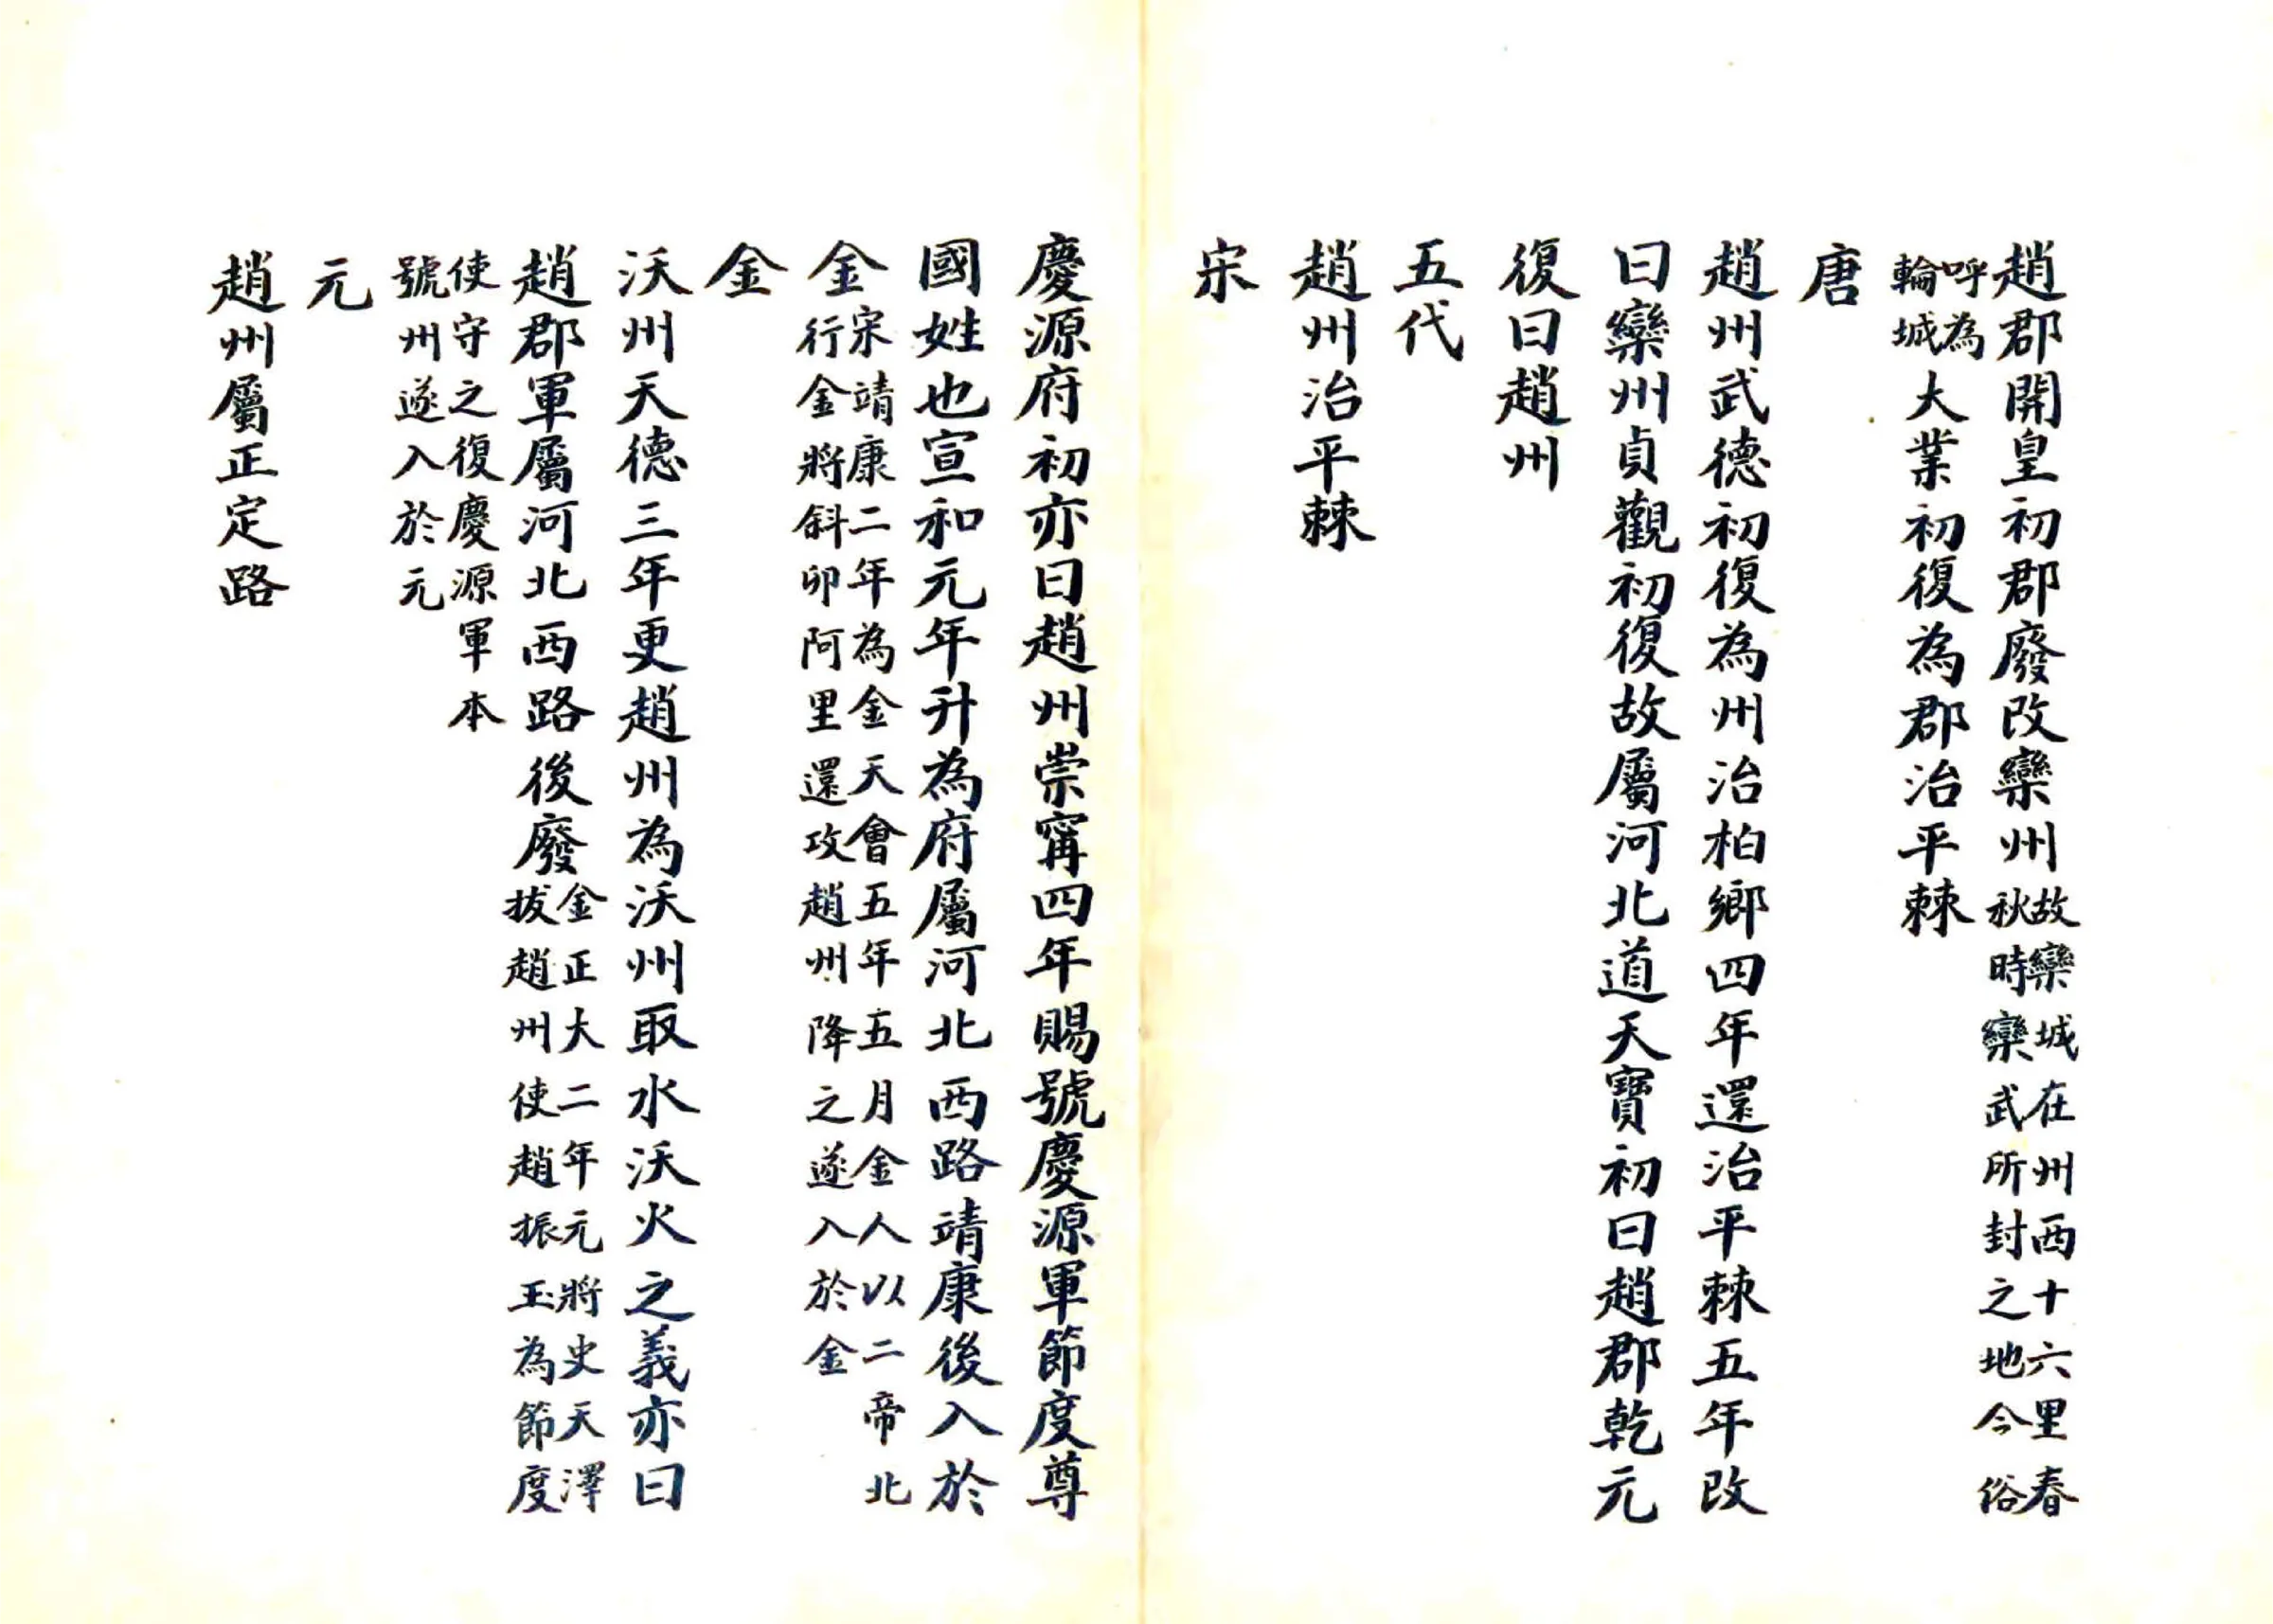 趙郡開皇初郡廢改欒州故欒城在州西十六里春秋時欒武所封之地今俗
呼為輪城大業初復為郡治平棘
唐
趙州武德初復為州治柏鄉四年還治平棘五年改
曰欒州貞觀初復故屬河北道天寶初曰趙郡乾元
復曰趙州
五代
趙州治平棘
宋
慶源府初亦曰趙州崇寗四年賜號慶源軍節度尊
國姓也宣和元年升為府屬河北西路靖康後入於
金宋靖康二年為金天會五年五月金人以二帝北行金將斜卯阿里還攻趙州降之遂入於金
金
沃州天德三年更趙州為沃州取水沃火之義亦曰
趙郡軍屬河北西路後廢金正大二年元將史天澤拔趙州使趙振玉為節度
使守之復慶源軍本號州遂入於元
元
趙州屬正定路